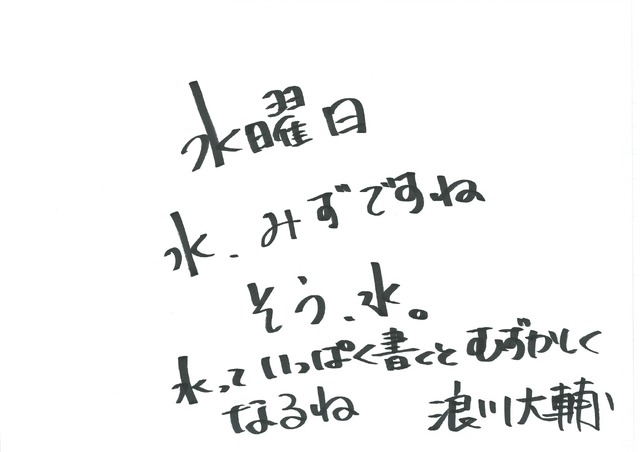 水曜日
水、みずですね
そう、水。
水っていっぱく書くとむずかしく
なるね 浪川大輔